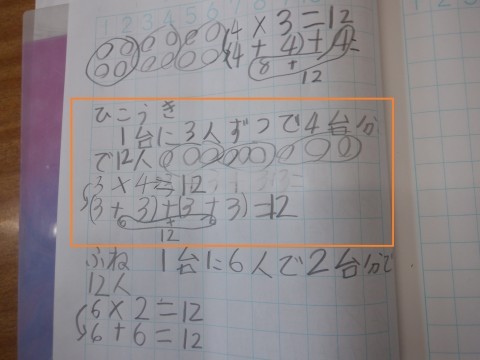 4×3=12
(4+4)+4=
8+
12
ひこうき
1台に3人ずつで4台分
で12人
3×4=12
(3+3)+(3+3)=12
6+6
12
ふね 1台に6人で2台分で
12人
6×2=12
6+6=12